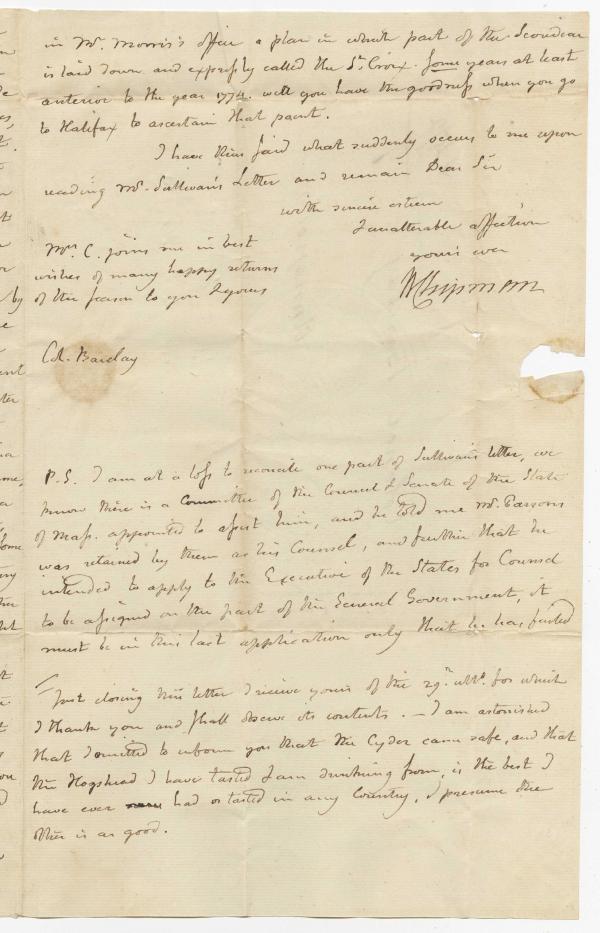 in Mr. Morris's office a plan in which part of the Scoudiac
is laid down and expressly called the St. Croix. some years at least
anterior to the year 1774. will you have the goodness when you go
to Halifax to ascertain that point.
I have thus said what suddenly occurs to me upon
reading Mr. Sullivan's Letter and remain Dear Sir
with sincere esteem
& unalterable affection
yours ever
WChipman
Mrs. C. joins me in best
wishes of many happy returns
of the season to you & yours
Col. Barclay
P.S. I am at a loss to reconcile one part of Sullivan's letter, we
know there is a Committee of the Council & Senate of the State
of Mass. appointed to assist him, and he told me Mr. Parsons
was retained by them as his Counsel, and further that he
intended to apply to the Executive of the States for Counsel
to be assigned on the part of the General Government, it
must be in this last application only that he has failed
Just closing this letter I receive yours of the 29th. ulto. for which
I thank you and shall observe its contents. — I am astonished
that I omitted to inform you that the Cyder came safe, and that
the Hogshead I have tasted & am drinking from, is the best I
have ever had or tasted in any Country, I presume the
other is as good.